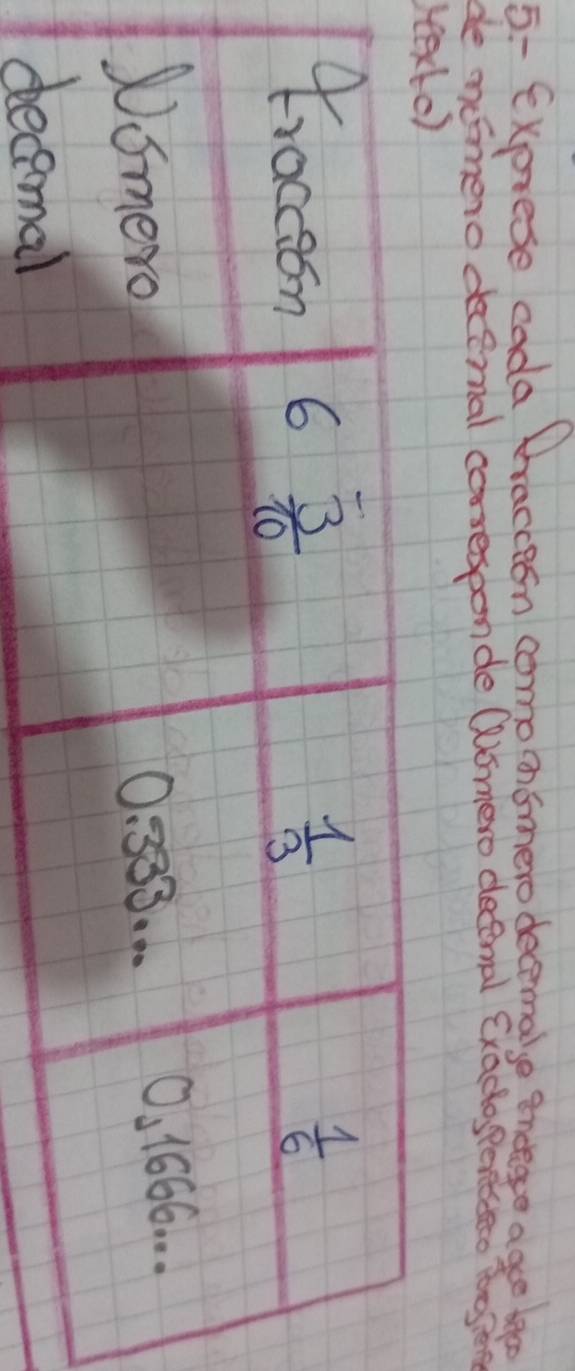 5.- Exprese cada fracción como número decimal e indique a que tipo
de número decimal corresponde (Número decimal Exacto, Periódico
Mixto)
fracción 6 3/10 1/3 1/6
Número
decimal 0.333... 0,1666...